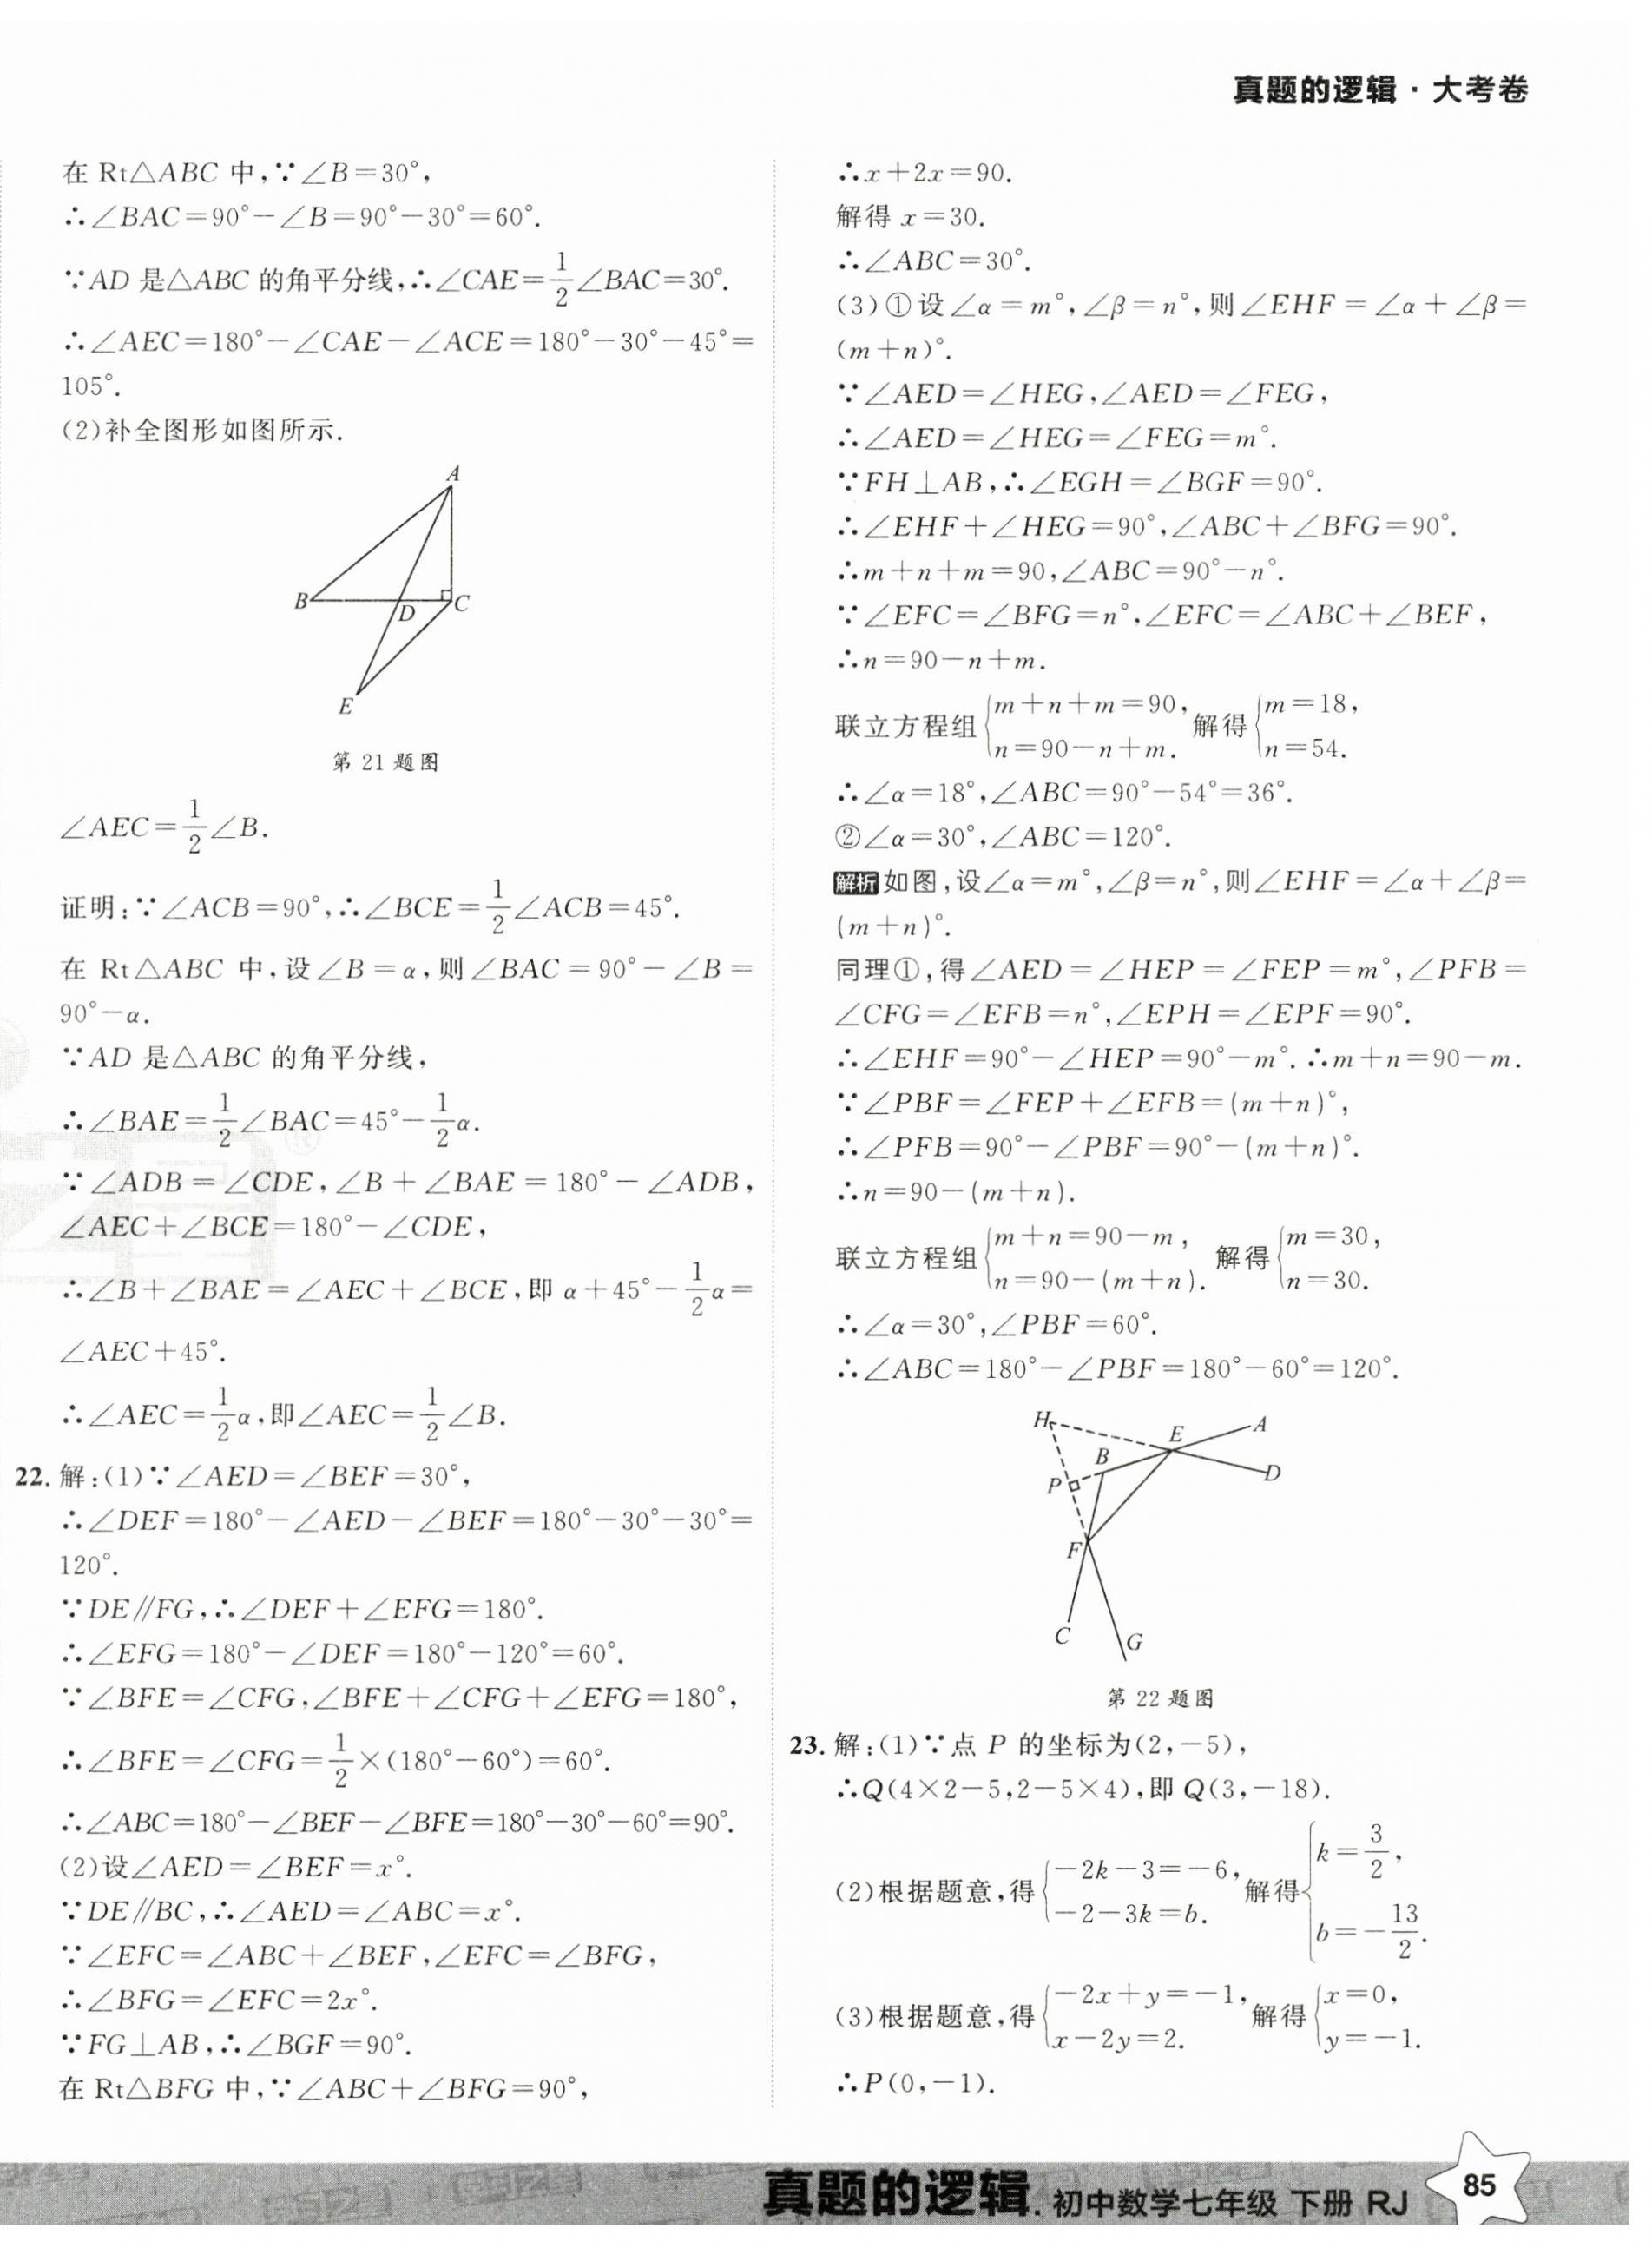 真题的逻辑·大考卷
在 Rt△ABC 中,∵∠B=30°,
∴∠BAC=90°-∠B=90°-30°=60°.
∵AD 是△ABC 的角平分线,∴∠CAE=1/2∠BAC=30°.
∴∠AEC=180°-∠CAE-∠ACE=180°-30°-45°=
105°.
(2)补全图形如图所示.
A
B
D
C
E
第 21 题图
∠AEC=1/2∠B.
证明:∵∠ACB=90°,∴∠BCE=1/2∠ACB=45°.
在 Rt△ABC 中,设∠B=α,则∠BAC=90°-∠B=
90°-α.
∵AD 是△ABC 的角平分线,
∴∠BAE=1/2∠BAC=45°-1/2α.
∵∠ADB=∠CDE,∠B+∠BAE=180°-∠ADB,
∠AEC+∠BCE=180°-∠CDE,
∴∠B+∠BAE=∠AEC+∠BCE,即 α+45°-1/2α=
∠AEC+45°.
∴∠AEC=1/2α,即∠AEC=1/2∠B.
22. 解:(1)∵∠AED=∠BEF=30°,
∴∠DEF=180°-∠AED-∠BEF=180°-30°-30°=
120°.
∵DE∥FG,∴∠DEF+∠EFG=180°.
∴∠EFG=180°-∠DEF=180°-120°=60°.
∵∠BFE=∠CFG,∠BFE+∠CFG+∠EFG=180°,
∴∠BFE=∠CFG=1/2×(180°-60°)=60°.
∴∠ABC=180°-∠BEF-∠BFE=180°-30°-60°=90°.
(2)设∠AED=∠BEF=x°.
∵DE∥BC,∴∠AED=∠ABC=x°.
∵∠EFC=∠ABC+∠BEF,∠EFC=∠BFG,
∴∠BFG=∠EFC=2x°.
∵FG⊥AB,∴∠BGF=90°.
在 Rt△BFG 中,∵∠ABC+∠BFG=90°,
∴x+2x=90.
解得 x=30.
∴∠ABC=30°.
(3)①设∠α=m°,∠β=n°,则∠EHF=∠α+∠β=
(m+n)°.
∵∠AED=∠HEG,∠AED=∠FEG,
∴∠AED=∠HEG=∠FEG=m°.
∵FH⊥AB,∴∠EGH=∠BGF=90°.
∴∠EHF+∠HEG=90°,∠ABC+∠BFG=90°.
∴m+n+m=90,∠ABC=90°-n°.
∵∠EFC=∠BFG=n°,∠EFC=∠ABC+∠BEF,
∴n=90-n+m.
联立方程组{m+n+m=90, n=90-n+m. 解得{m=18, n=54.
∴∠α=18°,∠ABC=90°-54°=36°.
②∠α=30°,∠ABC=120°.
解析 如图,设∠α=m°,∠β=n°,则∠EHF=∠α+∠β=
(m+n)°.
同理①,得∠AED=∠HEP=∠FEP=m°,∠PFB=
∠CFG=∠EFB=n°,∠EPH=∠EPF=90°.
∴∠EHF=90°-∠HEP=90°-m°.∴m+n=90-m.
∵∠PBF=∠FEP+∠EFB=(m+n)°,
∴∠PFB=90°-∠PBF=90°-(m+n)°.
∴n=90-(m+n).
联立方程组{m+n=90-m, n=90-(m+n). 解得{m=30, n=30.
∴∠α=30°,∠PBF=60°.
∴∠ABC=180°-∠PBF=180°-60°=120°.
H
E
A
B
D
P
F
C
G
第 22 题图
23. 解:(1)∵点 P 的坐标为(2,-5),
∴Q(4×2-5,2-5×4),即 Q(3,-18).
(2)根据题意,得{-2k-3=-6, -2-3k=b. 解得{k=3/2, b=-13/2.
(3)根据题意,得{-2x+y=-1, x-2y=2. 解得{x=0, y=-1.
∴P(0,-1).
真题的逻辑. 初中数学七年级 下册 RJ
85